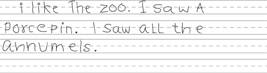 i like The zoo. I saw A
Porcepin. I saw all the
annumels.